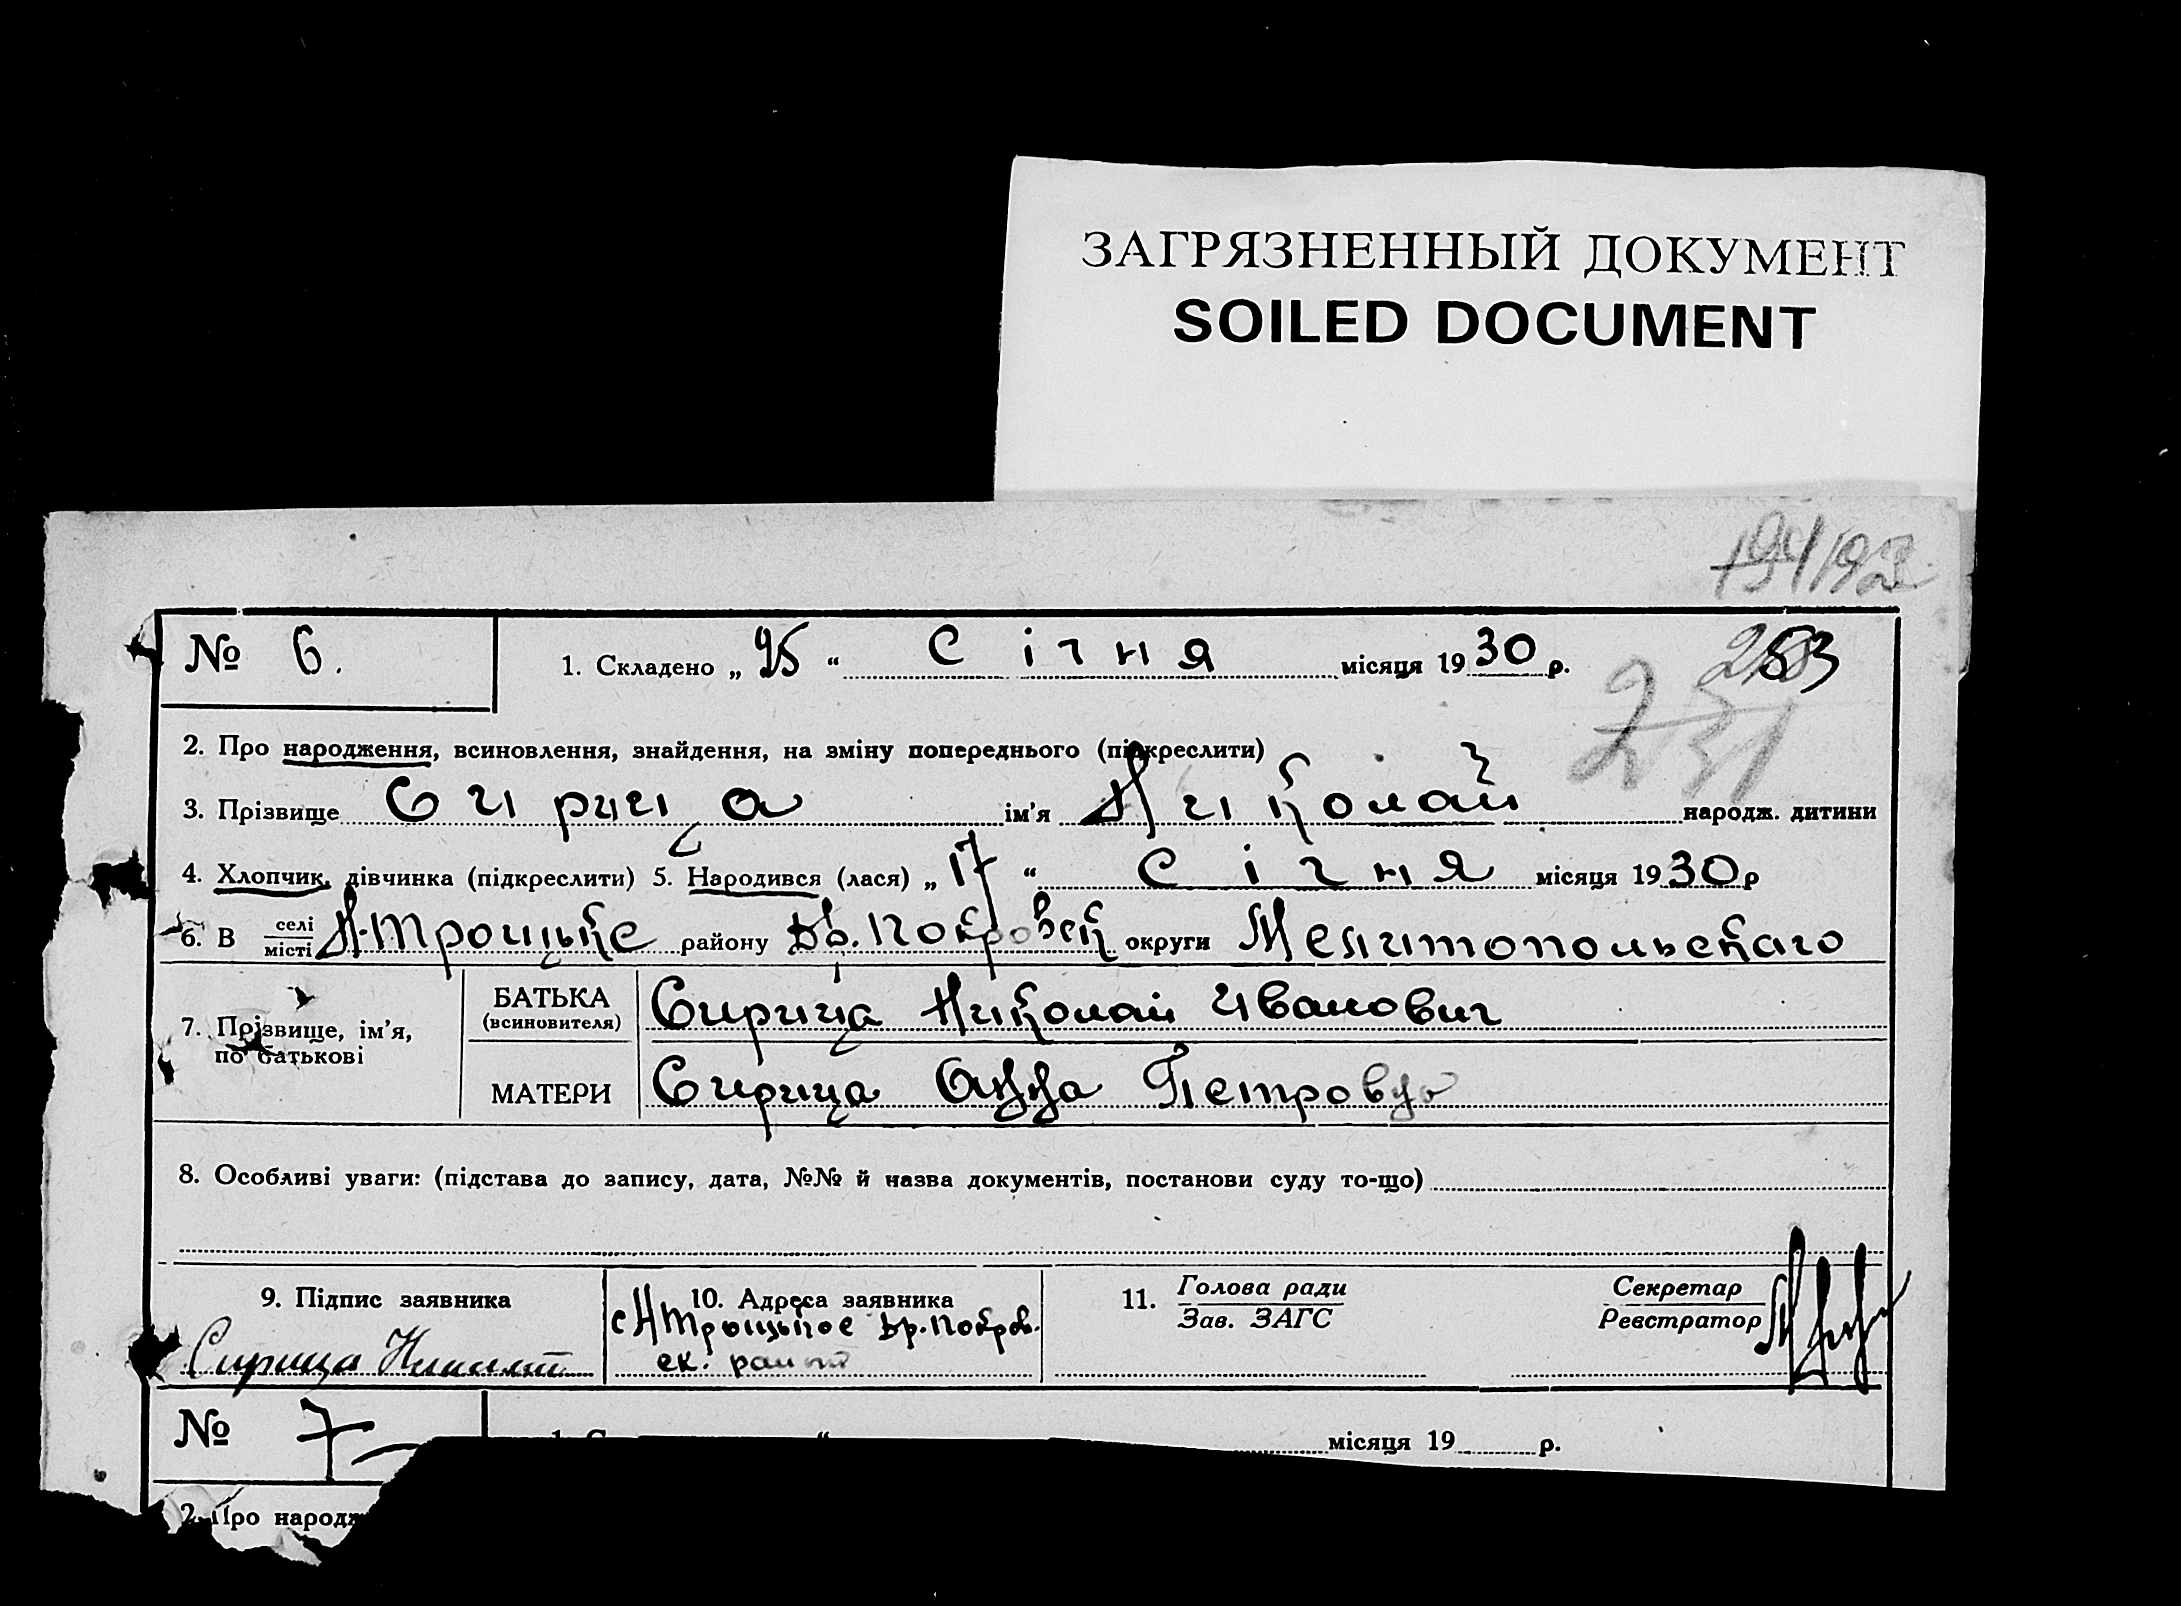 ЗАГРЯЗНЕННЫЙ ДОКУМЕНТ
SOILED DOCUMENT
194192
253
231
№ 6.
1. Складено „ 25 “ Січня місяця 1930 р.
2. Про народження, всиновлення, знайдення, на зміну попереднього (підкреслити)
3. Прізвище Сирица ім'я Николай народж. дитини
4. Хлопчик, дівчинка (підкреслити) 5. Народився (лася) „ 17 “ Січня місяця 1930 р
6. В селі місті Н-Троицьке району Вр. Покровск округи Мелитопольскаго
7. Прізвище, ім'я, по батькові
БАТЬКА (всиновителя) Сирица Николай Иванович
МАТЕРИ Сирица Анна Петровна
8. Особливі уваги: (підстава до запису, дата, №№ й назва документів, постанови суду то-що)
9. Підпис заявника
Сирица Николай
10. Адреса заявника
с Н Троицькое Вр. Покров.
ск. район
11. Голова ради
Зав. ЗАГС
Секретар
Реєстратор
№ 7
місяця 19 р.
2. Про народж